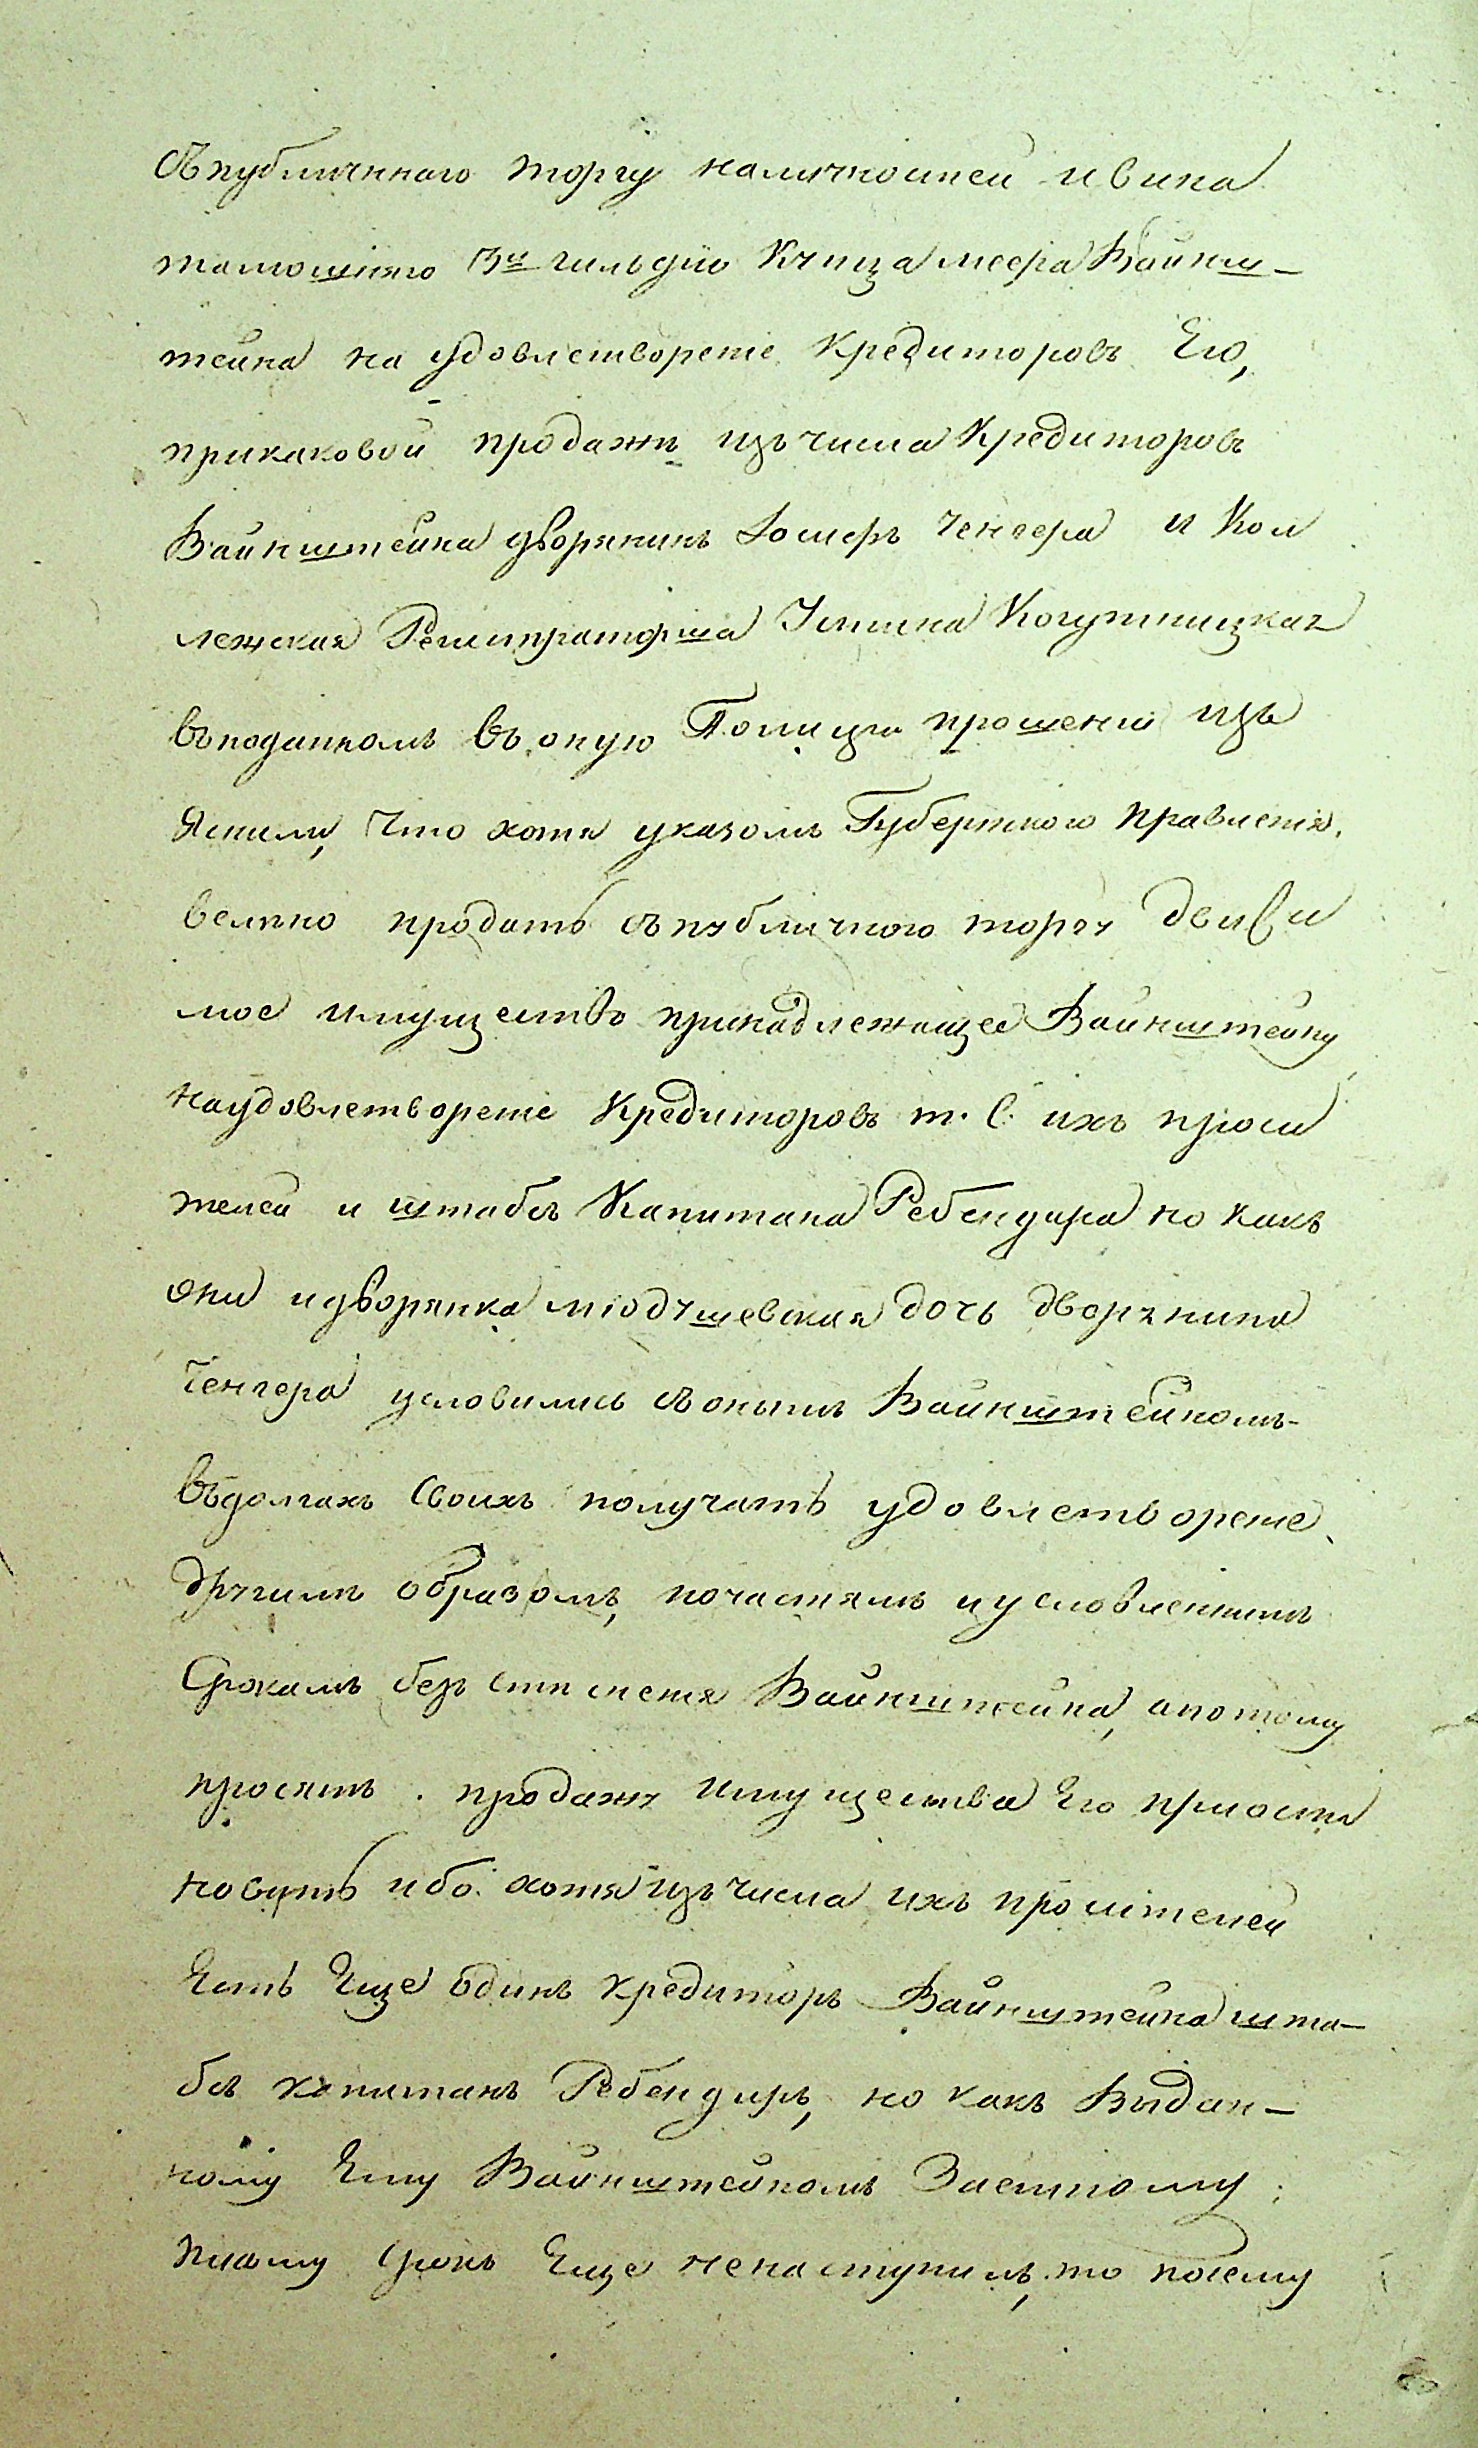 съпубличннаго торгу наличностей ивина
тамошняго 3й гильдіи Купца Меера Вайнш-
тейна на удовлетвореніе Кредиторовъ Его,
прикаковой продажѣ изъ числа Кредиторовъ
Вайнштейна дворянинъ Ченгера и Кол
лежская Регистраторша Когутницкая
въподанномъ въ оную Полицію прошеніи изъ
яснили, что хотя указомъ Губернского Правленія
велѣно продать съ публичного торгу движи
мое имущество принадлежащее Вайнштейну
наудовлетвореніе Кредиторовъ т. е. ихъ проси
телей и штабсъ Капитана Ребендира но какъ
они идворянка дочь дворянина
Ченгера условились съ онымъ Вайнштейномъ
въдолгахъ Своихъ получать удовлетвореніе
другимъ образомъ, почастямъ иусловленнымъ
Срокамъ безъ стѣсненія Вайнштейна, апотому
просятъ продажу имущества Его пріоста
новить ибо хотя изъ числа ихъ просителей
Есть Еще одинъ кредиторъ Вайнштейна шта-
бсъ капитанъ Ребендиръ, но какъ Выдан-
ному Ему Вайнштейномъ Заемному
писму срокъ Еще ненаступилъ, то посему